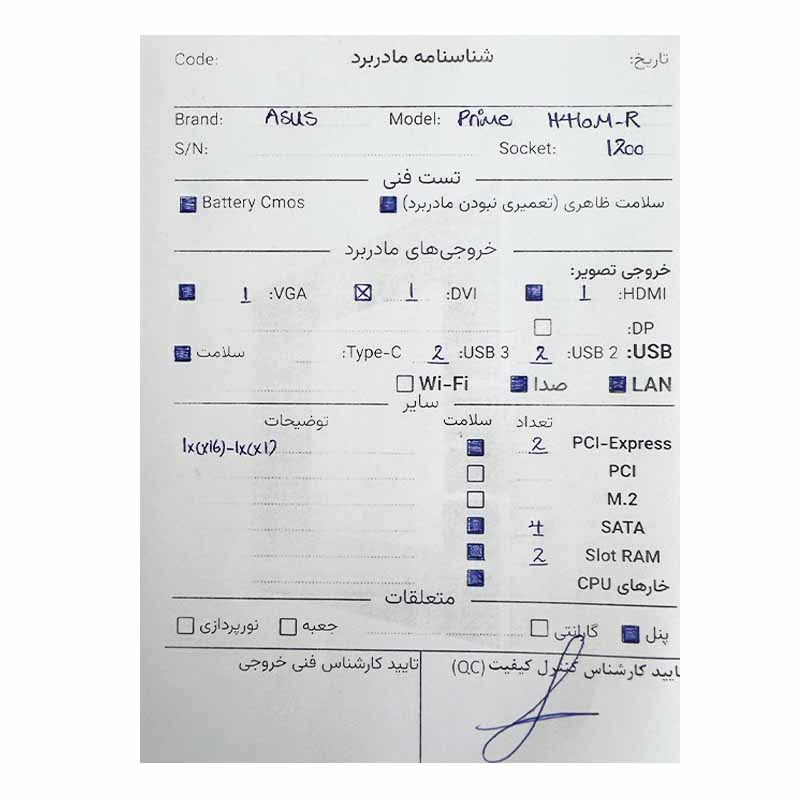 تاریخ: شناسنامه مادربرد Code:
Brand: ASUS Model: Prime H410M-R
S/N: Socket: 1200
تست فنی
سلامت ظاهری (تعمیری نبودن مادربرد) Battery Cmos
خروجی‌های مادربرد
خروجی تصویر:
HDMI: 1 DVI: 1 VGA: 1
DP:
USB: USB 2: 2 USB 3: 2 Type-C: سلامت
LAN صدا Wi-Fi
سایر
تعداد سلامت توضیحات
PCI-Express 2 1x(x16)-1x(x1)
PCI
M.2
SATA 4
Slot RAM 2
خارهای CPU
متعلقات
پنل گارانتی جعبه نورپردازی
تایید کارشناس کنترل کیفیت (QC) تایید کارشناس فنی خروجی